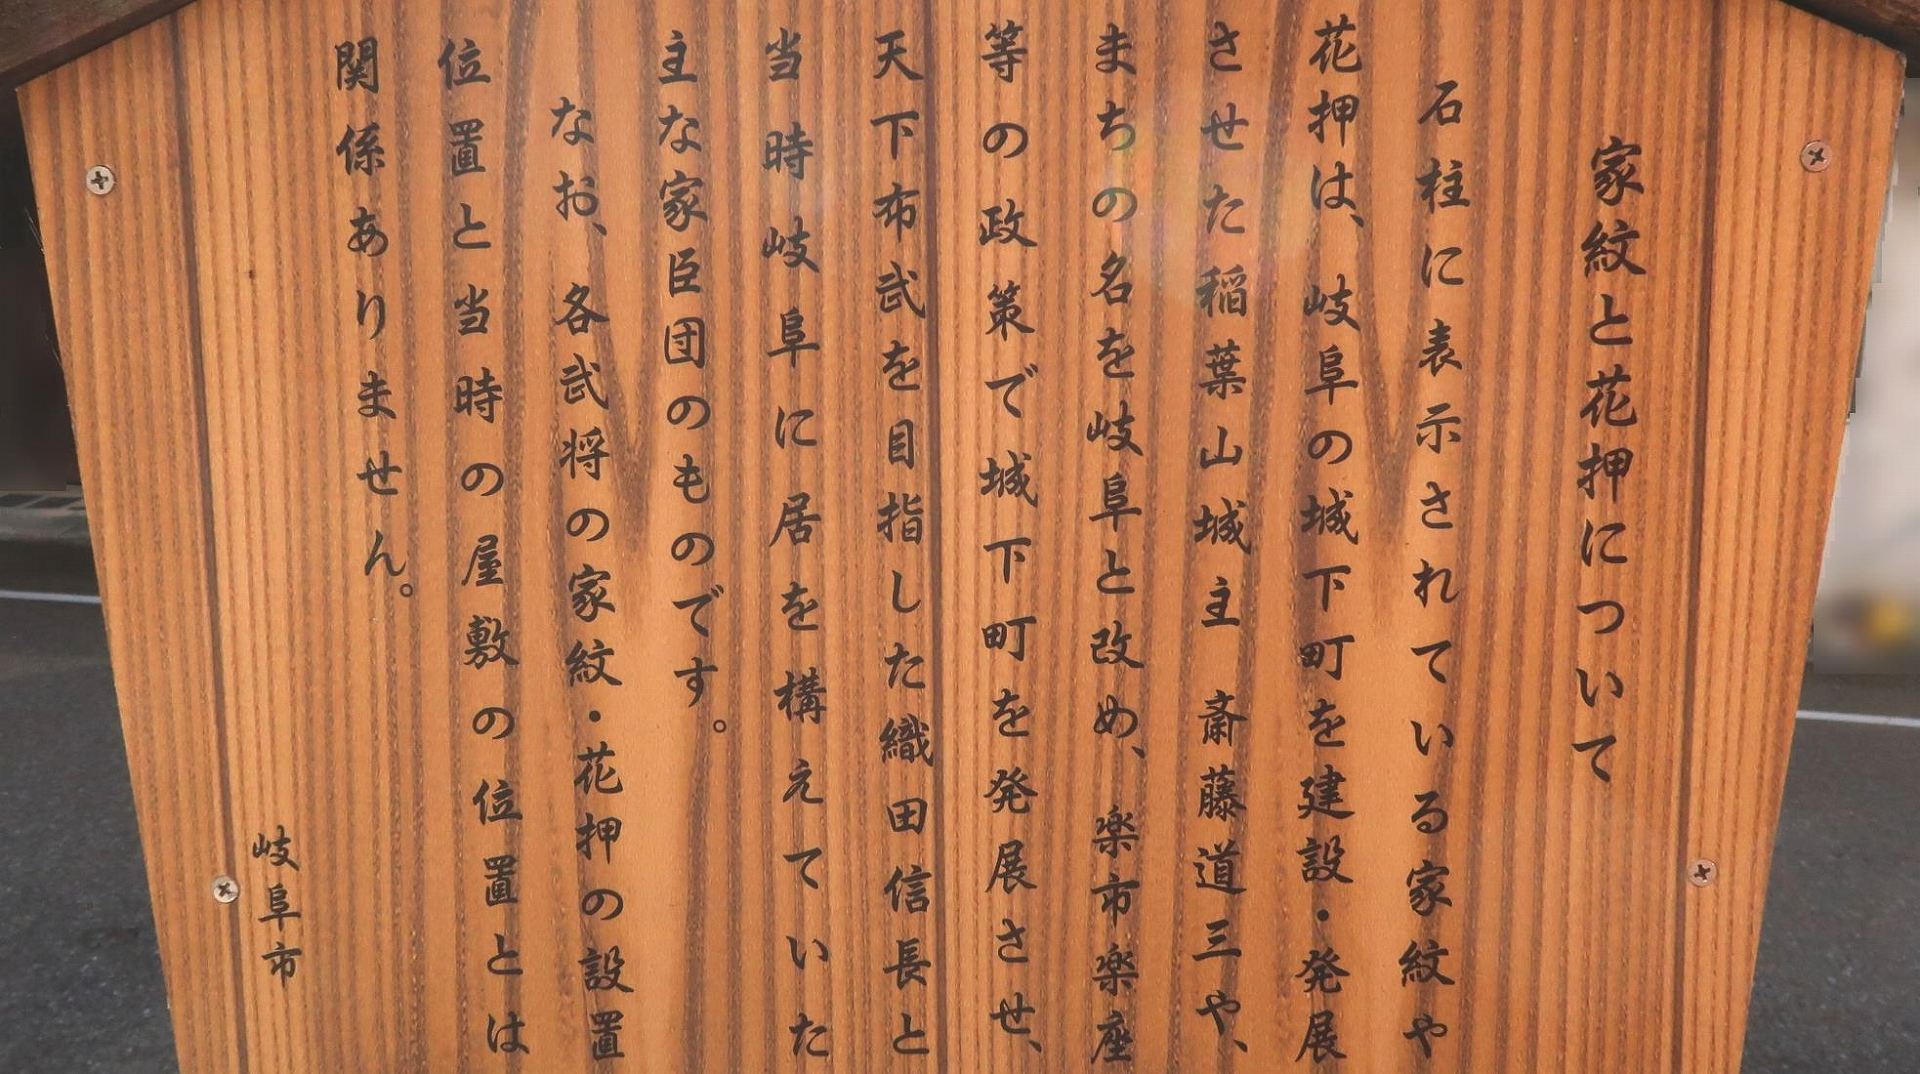 家紋と花押について
石柱に表示されている家紋や
花押は、岐阜の城下町を建設・発展
させた稲葉山城主 斎藤道三や、
まちの名を岐阜と改め、楽市楽座
等の政策で城下町を発展させ、
天下布武を目指した織田信長と
当時岐阜に居を構えていた
主な家臣団のものです。
なお、各武将の家紋・花押の設置
位置と当時の屋敷の位置とは
関係ありません。
岐阜市